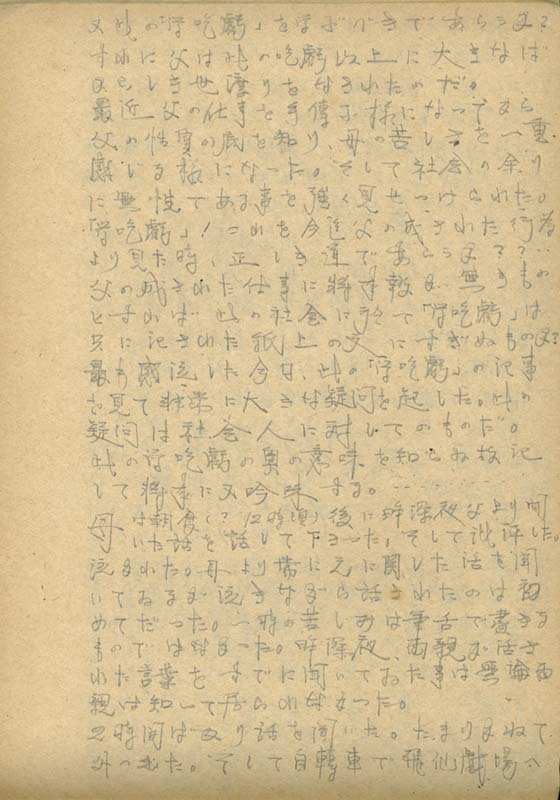 又此の「学吃虧」を学ぶべきであらうか?
すれば父は此の吃虧以上に大きなば
からしき世渡りをなされたのだ。
最近父の仕事を手傳ふ様になってから
父の性質の底を知り、母の苦しさを一重
感じる様になった。そして社会の余り
に無情である事を強く見せつけられた。
「学吃虧」! これを今迄父の成された行為
より見た時、正しき道であらうか??
父の成された仕事に将来報が無きもの
とすれば此の社会に於て「学吃虧」は
只に記された紙上の文にすぎぬものか?
最も感泣した今日、此の「学吃虧」の記事
を見て非常に大きな疑問を起した。此の
疑問は社会人に対してのものだ。
此の学吃虧の奥の意味を知らぬ故記
して将来に又吟味する。
母は朝食(?12時頃)後に昨深夜父より聞
いた話を話して下さった、そして批評した。
泣かれた。母より常に元に関した話を聞
いておるが泣きながら話されたのは初
めてだった。一時の苦しみは筆舌で書きる
ものではなかった。昨深夜、両親が話さ
れた言葉をすでに聞いておた事は無論両
親は知って居られなかった。
2時間ばかり話を聞いた。たまりかねて
外へ出た。そして自轉車で 戲場へ